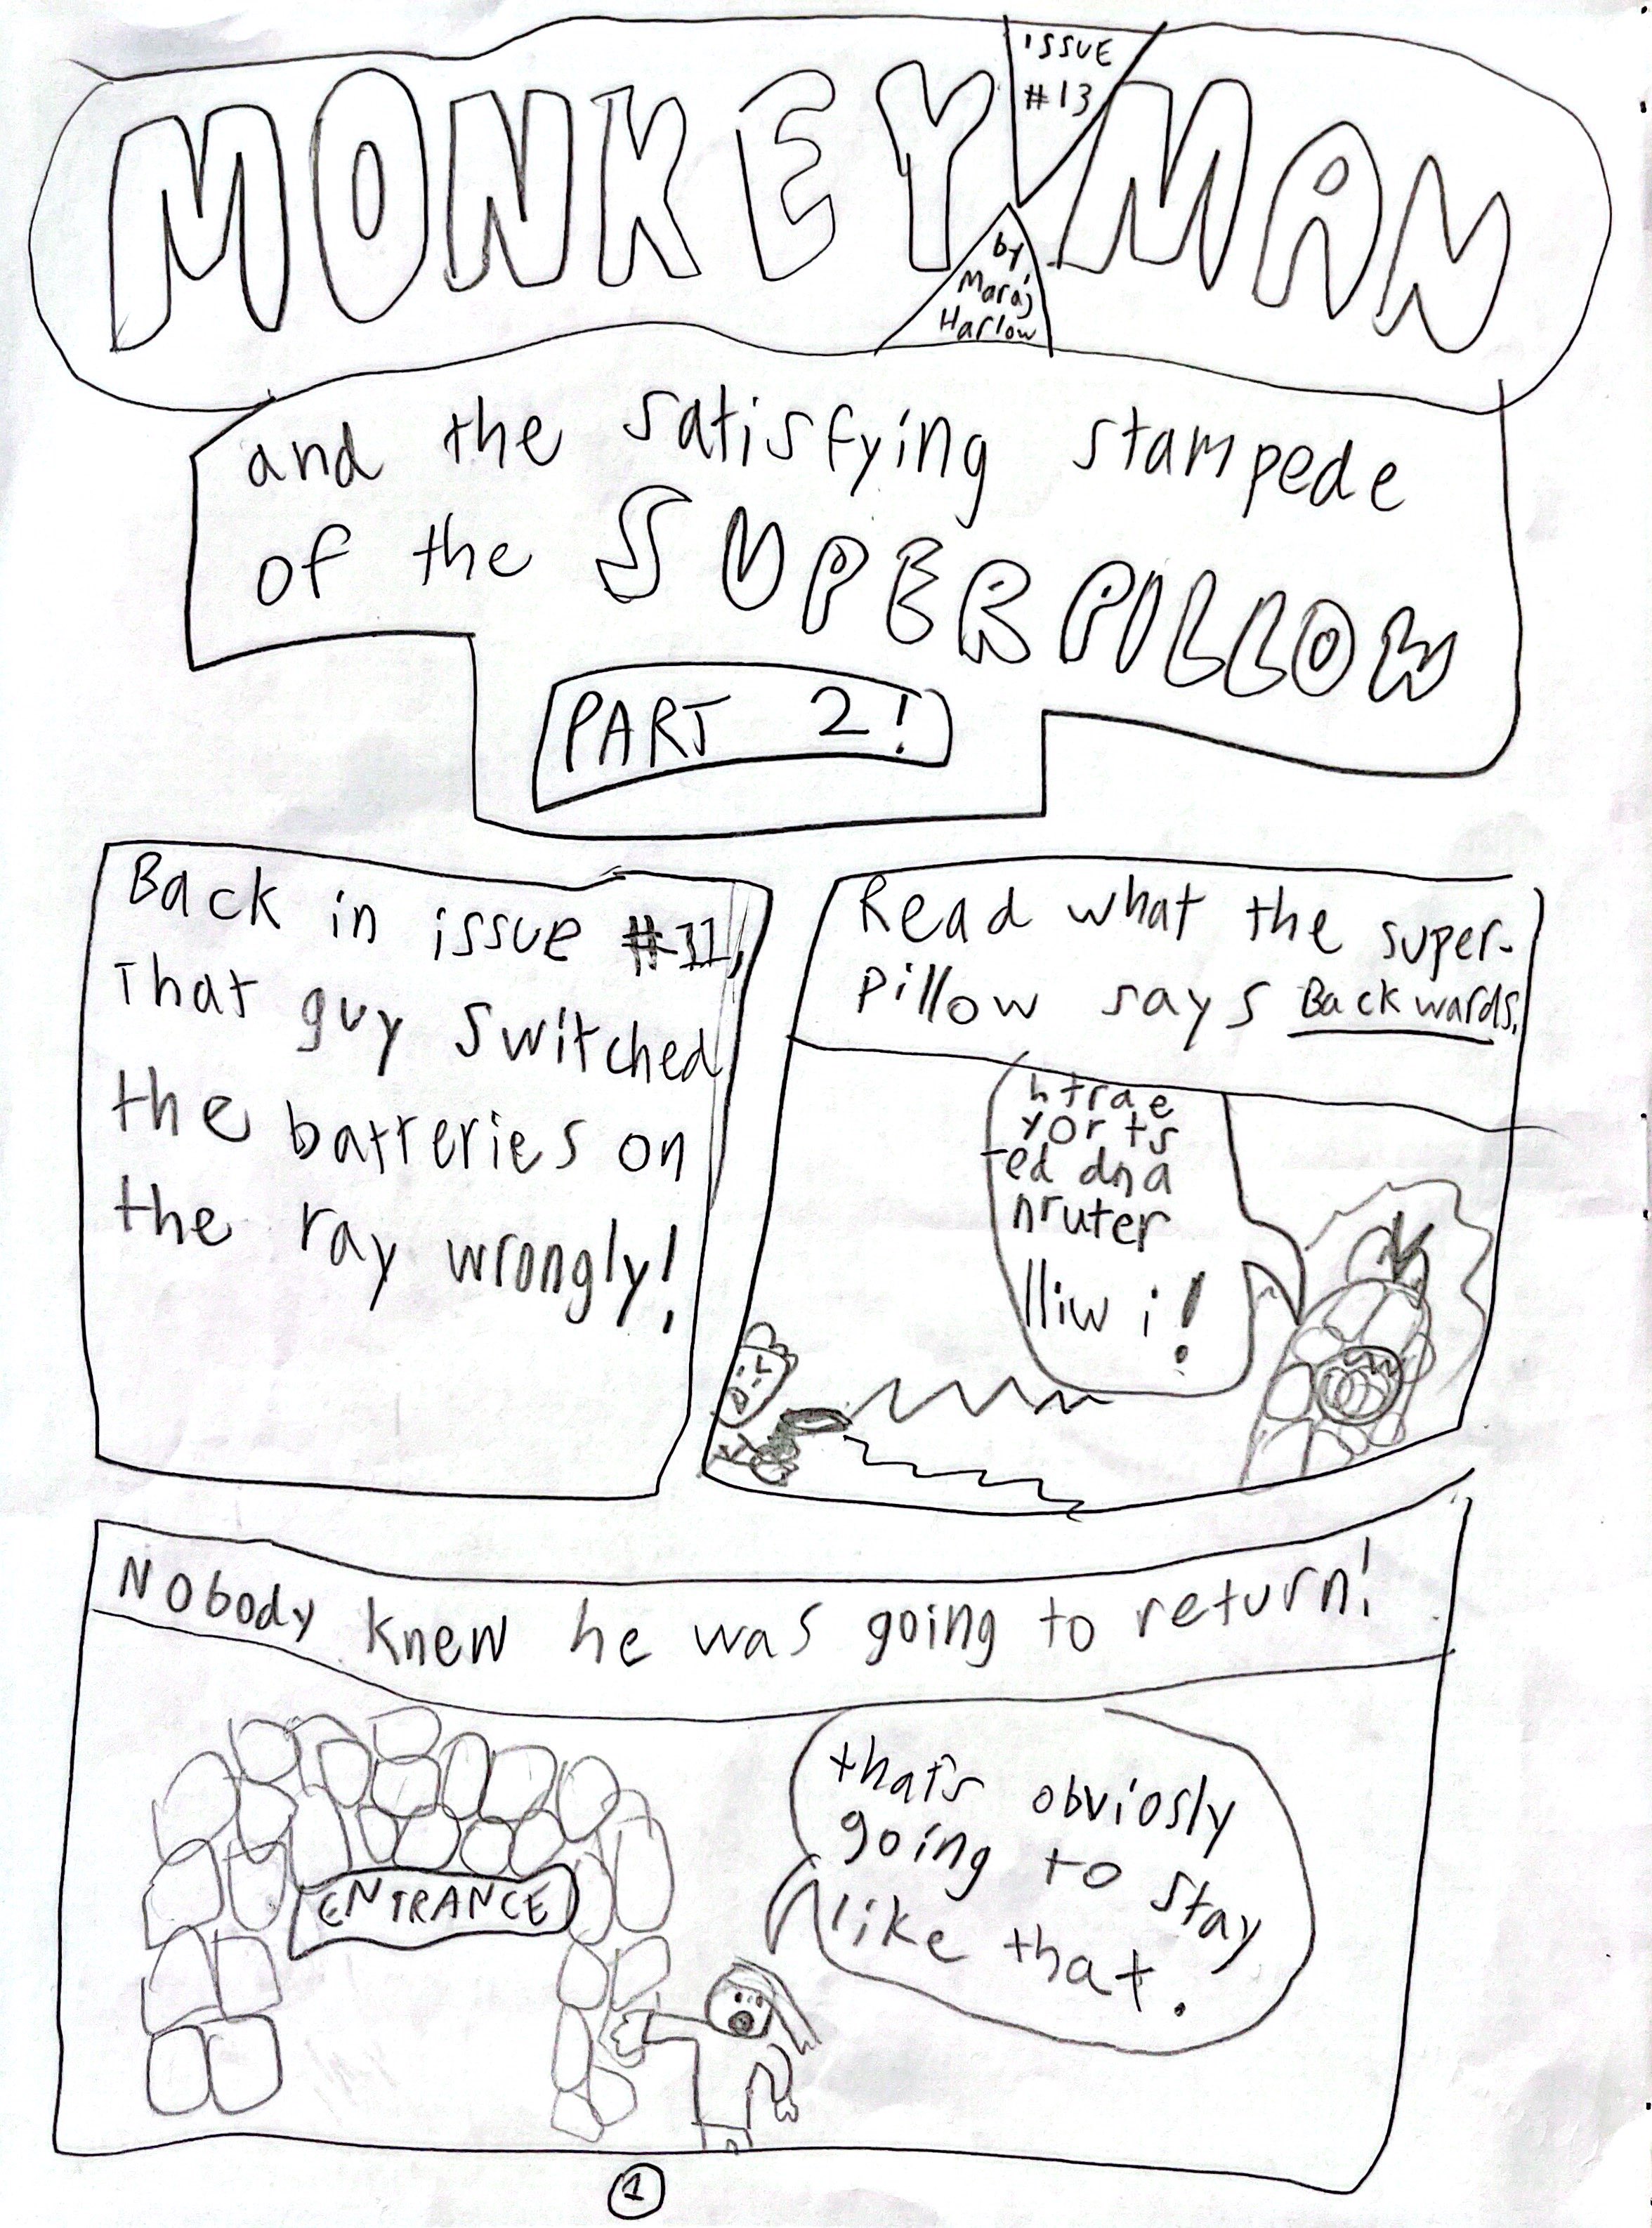 MONKEY MAN
ISSUE
#13
by
Maraj
Harlow
and the satisfying stampede
of the SUPERPILLOW
PART 2!
Back in issue #11,
That guy switched
the batteries on
the ray wrongly!
Read what the super-
pillow says Backwards.
htrae
yorts
-ed dna
nruter
lliw i!
Nobody knew he was going to return!
ENTRANCE
that's obviosly
going to stay
like that.
1